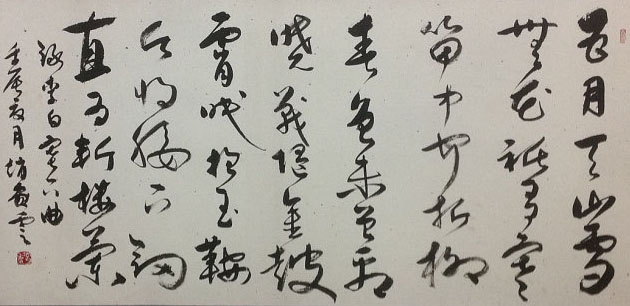 五月天山雪
無花祗有寒
笛中聞折柳
春色未曾看
曉戰隨金鼓
宵眠抱玉鞍
願將腰下劍
直為斬樓蘭
錄李白塞下曲
壬辰夏月